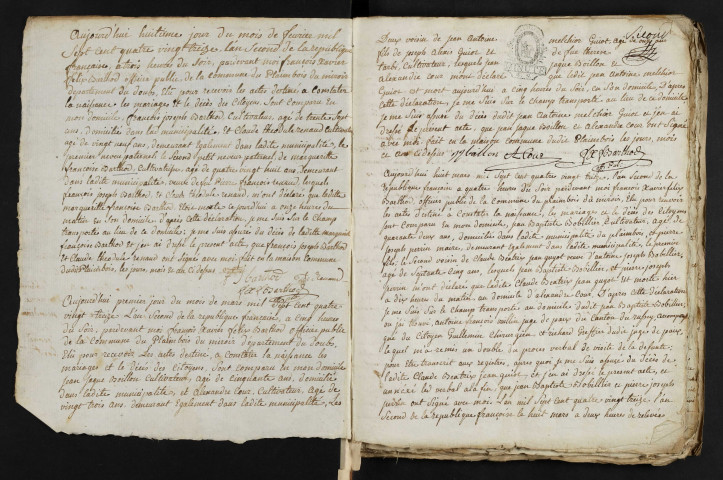 Aujourd'hui huitieme jour du mois de fevrier mil
Sept cent quatre vingt treize l'an Second de la republique
française, a trois heures du Soir, pardevant moi françois Xavier
felix Barthod officier public de la commune du Plaimbois du miroir
departement du doubs, élu pour recevoir les actes destinés a Constater
la naissance, les mariages et le décès des Citoyens, Sont comparu en
mon domicile, françois joseph Barthod Cultivateur, agé de trente Sept
ans, domicilié dans la municipalité, et Claude theodule renaud Cultivateur
agé de vingt neuf ans, demeurant egalement dans ladite municipalité, le
premier neveu paternel le Second petit neveu paternel de marguerite
françoise Barthod Cultivatrice, agé de quatre vingt huit ans demeurant
dans ladite municipalité, veuve de françois renaud, lesquels
françois joseph Barthod et Claude theodule renaud m'ont déclaré que ladite
marguerite françoise Barthod est morte ce jourd'hui a onze heures du
matin en Son domicile, d'après cette déclaration, je me Suis Sur le Champ
transporté au lieu de ce domicile; je me Suis assuré du décès de ladite marguerite
françoise Barthod et j'en ai dressé le present acte, que françois joseph Barthod
et Claude theodule renaud ont Signés avec moi, fait en la maison Commune
dudit Plaimbois, les jours, mois et an ci dessus
f j Barthod C t Renaud
f x f Barthod
Aujourd'hui premier jour du mois de mars mil Sept cent quatre
vingt treize l'an Second de la republique française, a cinq heures
du Soir, pardevant moi françois Xavier felix Barthod officier public
de la Commune du Plaimbois du miroir departement du doubs,
élu pour recevoir les actes destinés, a Constater la naissance les
mariages et le décès des Citoyens, Sont comparu en mon domicile
jean jaque Boillon Cultivateur, agé de Cinquante ans, domicilié
dans ladite municipalité, et Alexandre Cour Cultivateur, agé de
vingt trois ans, demeurant egalement dans ladite municipalité, les
Deux voisin de jean Antoine melchior Guiot, agé de
fils de joseph Alexis Guiot et de feue therese
Cultivateur, lesquels jean jaque Boillon et
Alexandre Cour m'ont déclaré que ledit jean Antoine melchior
Guiot est mort aujourd'hui a cinq heures du Soir, en Son domicile, D'après
cette déclaration, je me Suis Sur le Champ transporté au lieu de ce domicile
je me Suis assuré du décès dudit jean Antoine melchior Guiot et j'en ai
dressé le present acte, que jean jaque Boillon et alexandre Cour ont Signé
avec moi, fait en la maison Commune dudit Plaimbois les jours, mois
et an ci dessus Boillon A Cour f x f Barthod
Aujourd'hui huit mars mil Sept cent quatre vingt treize, l'an Second de la
republique françoise a quatre heures du Soir pardevant moi françois Xavier felix
Barthod officier public de la Commune du plaimbois du miroir, élu pour recevoir
les actes destinés a Constater la naissance, les mariages et le décès des Citoyens
Sont Comparu en mon domicile, jean Baptiste Bobillier Cultivateur, agé de
quarante deux ans, domicilié dans ladite municipalité du plaimbois, et pierre
joseph perrin maire, demeurant egalement dans ladite municipalité, le premier
le Second voisin de Claude Beatrix jean guyot veuve d'antoine joseph Bobillier,
agé de Septante cinq ans, lesquels jean Baptiste Bobillier, et pierre joseph
perrin m'ont déclaré que ladite Claude Beatrix jean guyot est morte hier
a dix heures du matin au domicile d'alexandre Cour, D'après cette déclaration
je me Suis Sur le Champ transporté au domicile dudit jean Baptiste Bobillier,
ou j'ai trouvé, antoine françois juge de paix du Canton du
que du Citoyen Guillemin Chirurgien et richard Greffier dudit juge de paix,
lequel m'a remis un double du procès verbal de visite de la defunte
pour etre transcrit aux registres, après quoi je me Suis assuré du décès de
ladite Claude Beatrix jean guiot, et j'en ai dressé le present acte, et
annexé le verbal a la fin, que jean Baptiste Bobillier et pierre joseph
perrin ont signé avec moi, l'an mil Sept cent quatre vingt treize, l'an
Second de la republique françoise le huit mars a deux heures de relevée